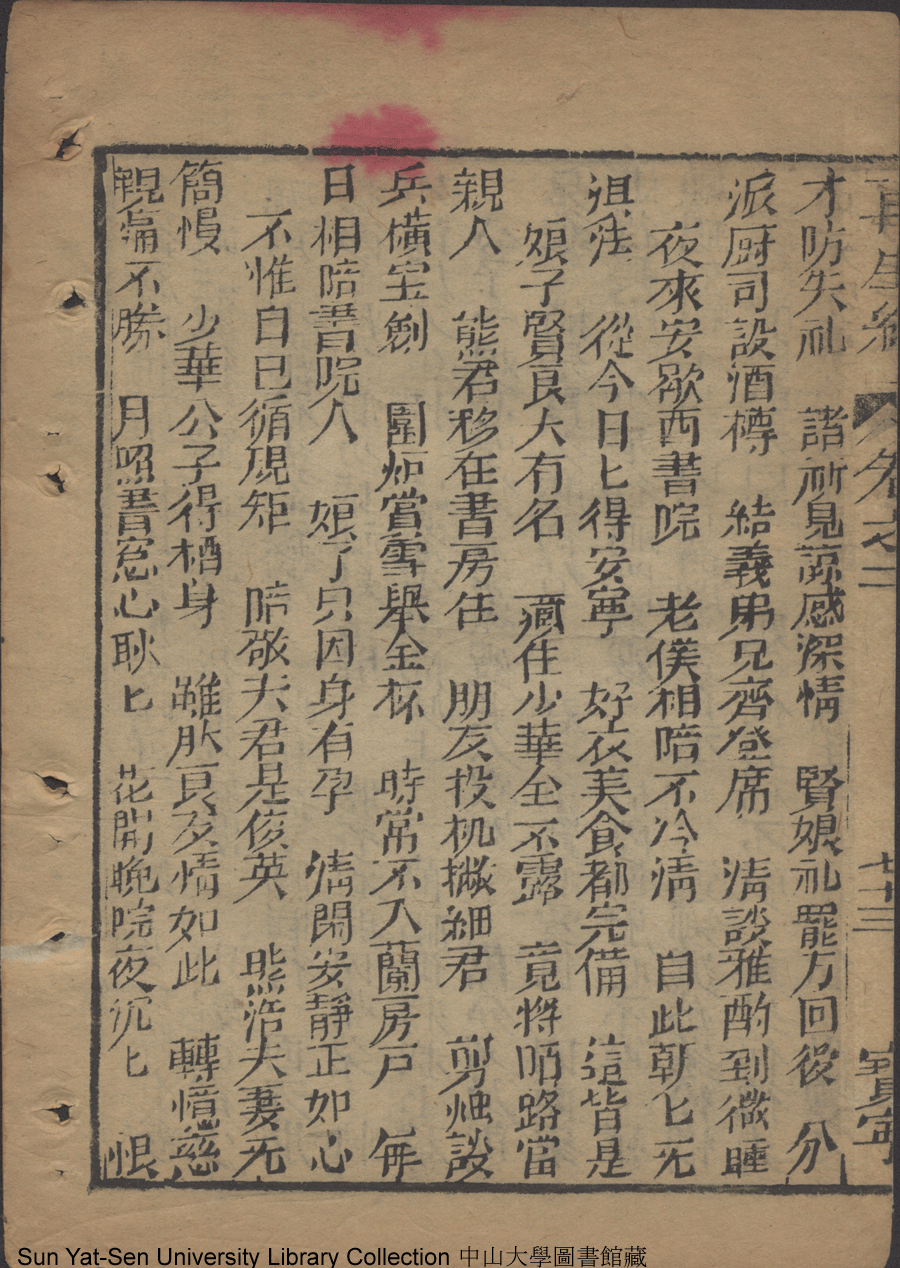 再生緣 卷之二 七十三 寶寧
才防失礼 諸祈見諒感深情 賢娘礼罷方回後 分
派厨司設酒樽 結義弟兄齊登席 清談雅酌到微醺
夜來安歇西書院 老僕相陪不冷清 自此朝匕无
俎 從今日匕得安寧 好衣美食都完備 這皆是
娘子賢良大有名 住少華全不露 竟將陌路當
親人 熊君移在書房住 朋友投机撇細君 剪燭談
兵横宝劍 圍炉賞雪舉金杯 時常不入蘭房戸 每
日相陪書院人 娘子只因身有孕 清閑安靜正如心
不惟自已循規矩 陪敬夫君是俊英 熊浩夫妻无
簡慢 少華公子得栖身 雖然良友情如此 轉憶慈
親痛不勝 月照書窓心耿匕 花開晚院夜沉匕 恨
Sun Yat-Sen University Library Collection 中山大學圖書館藏